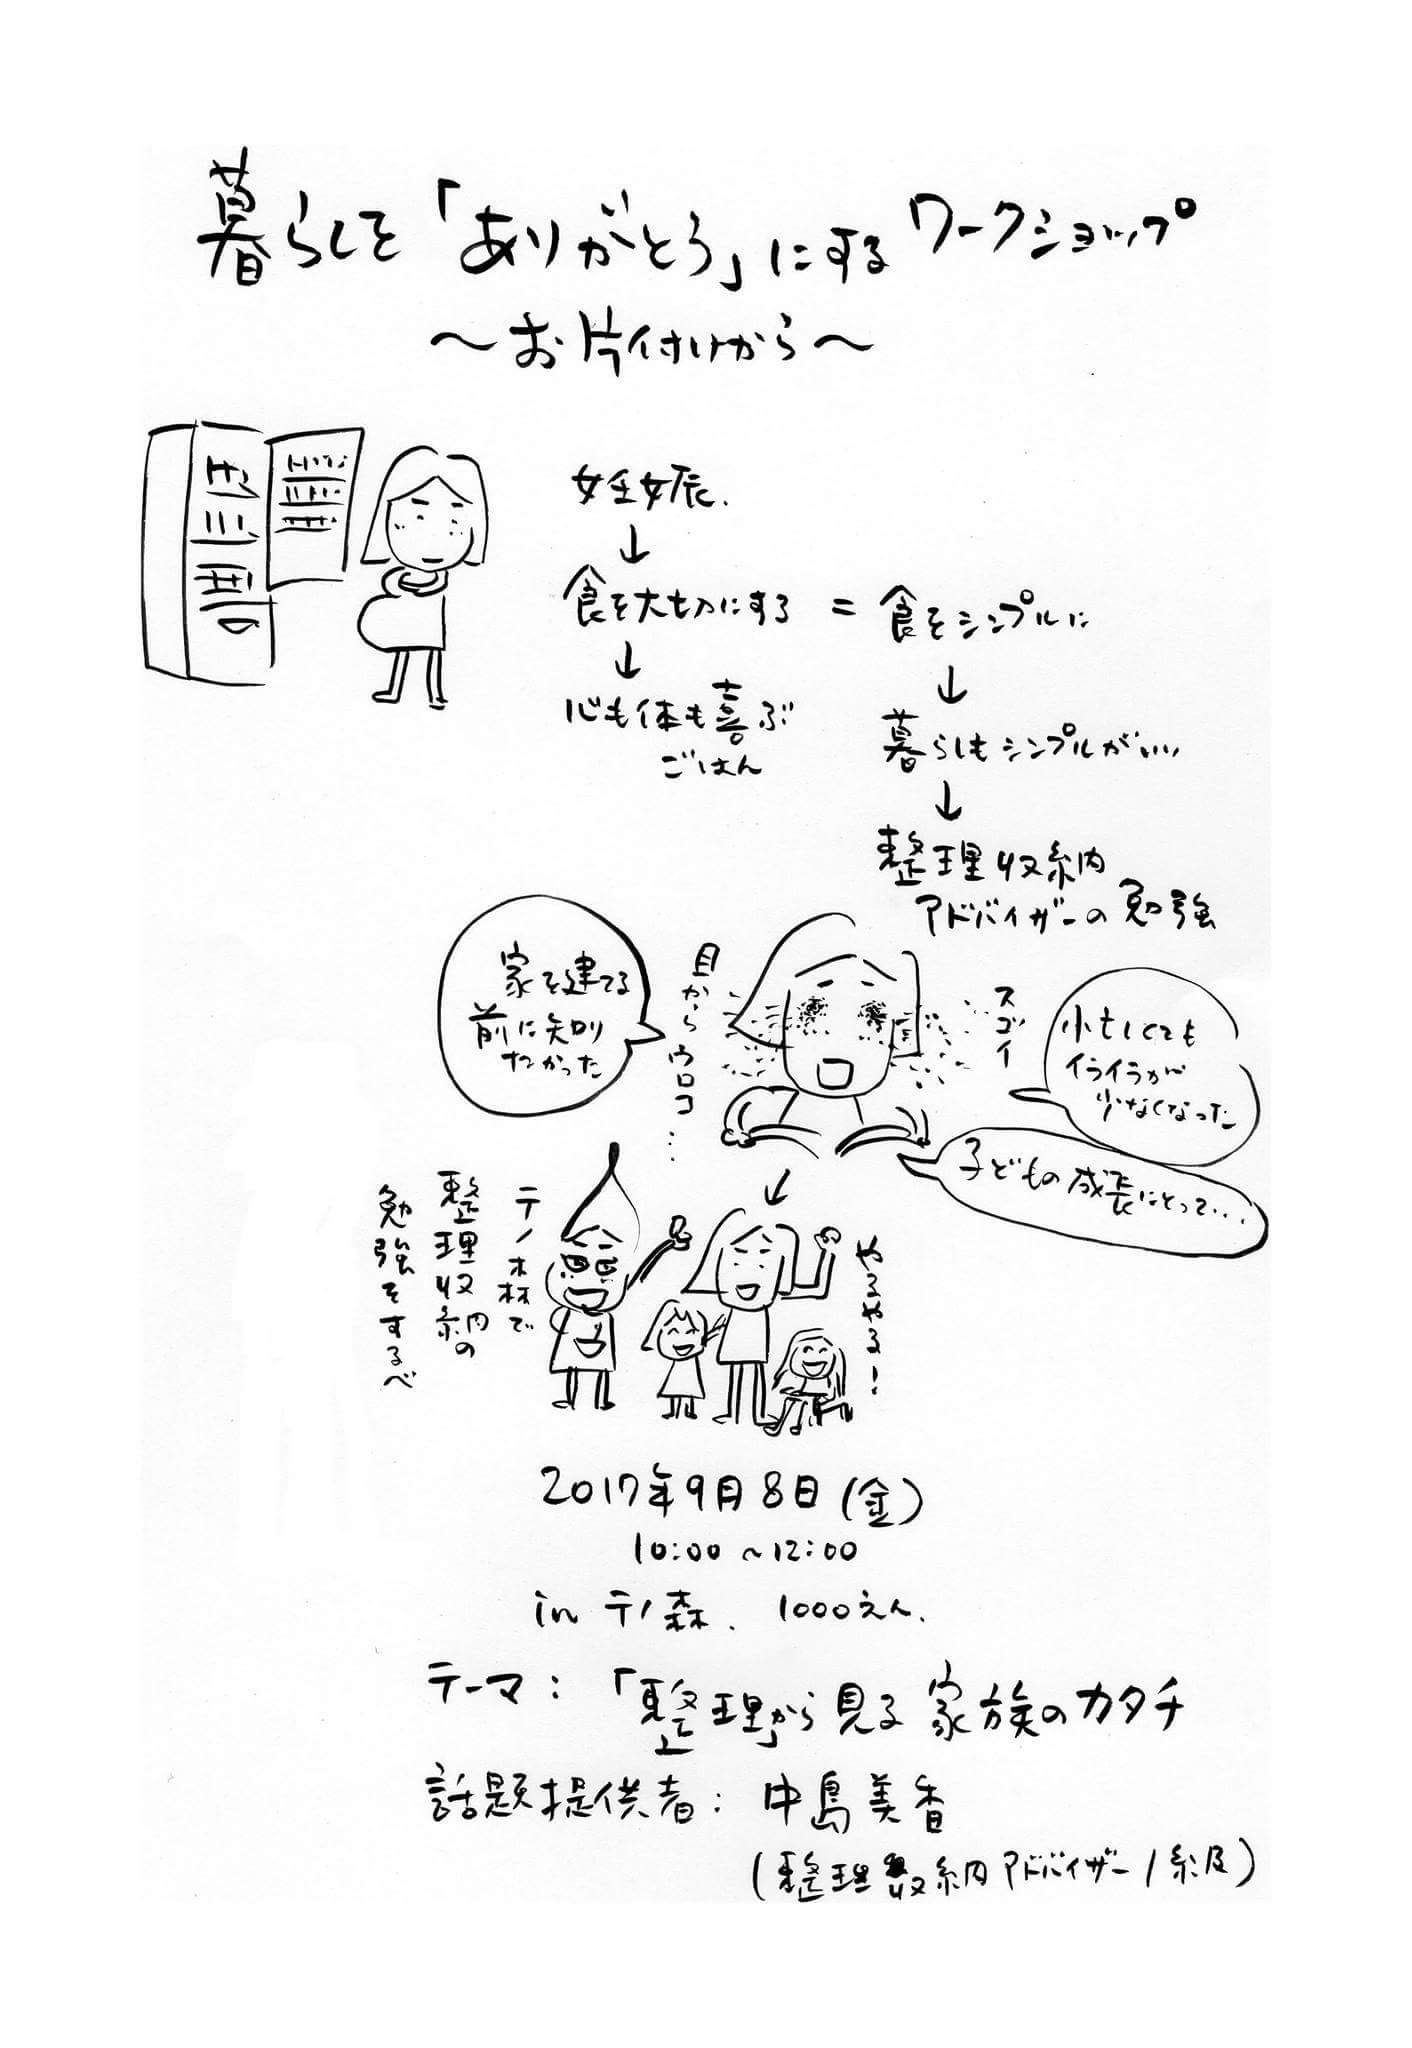 暮らしを「ありがとう」にするワークショップ
～お片付けから～
妊娠.
↓
食を大切にする = 食をシンプルに
↓
心も体も喜ぶ
ごはん
↓
暮らしもシンプルがいい
↓
整理収納
アドバイザーの勉強
家を建てる
前に知り
たかった
目からウロコ…
スゴイ
小もしくても
イライラが
少なくなった
子どもの成長にとって…
↓
テノ森で
整理収納の
勉強をするべ
やるやる!
2017年9月8日(金)
10:00~12:00
in テノ森. 1000えん.
テーマ:「整理」から見る家族のカタチ
話題提供者:中島美香
(整理収納アドバイザー1級)